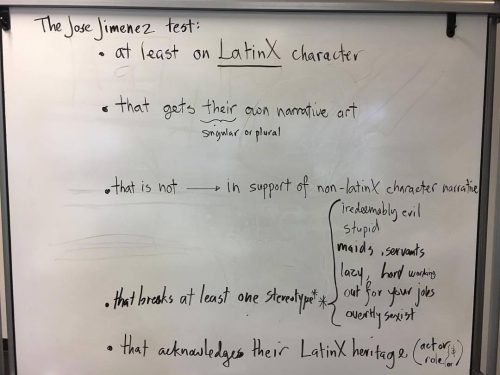 The Jose Jimenez test:
• at least on LatinX character
• that gets their own narrative art
singular or plural
• that is not → in support of non-latinX character narrative
iredeemably evil
stupid
maids, servants
lazy, hard working
out for your jobs
overtly sexist
• that breaks at least one stereotype* *
• that acknowledges their LatinX heritage (actor & role or)